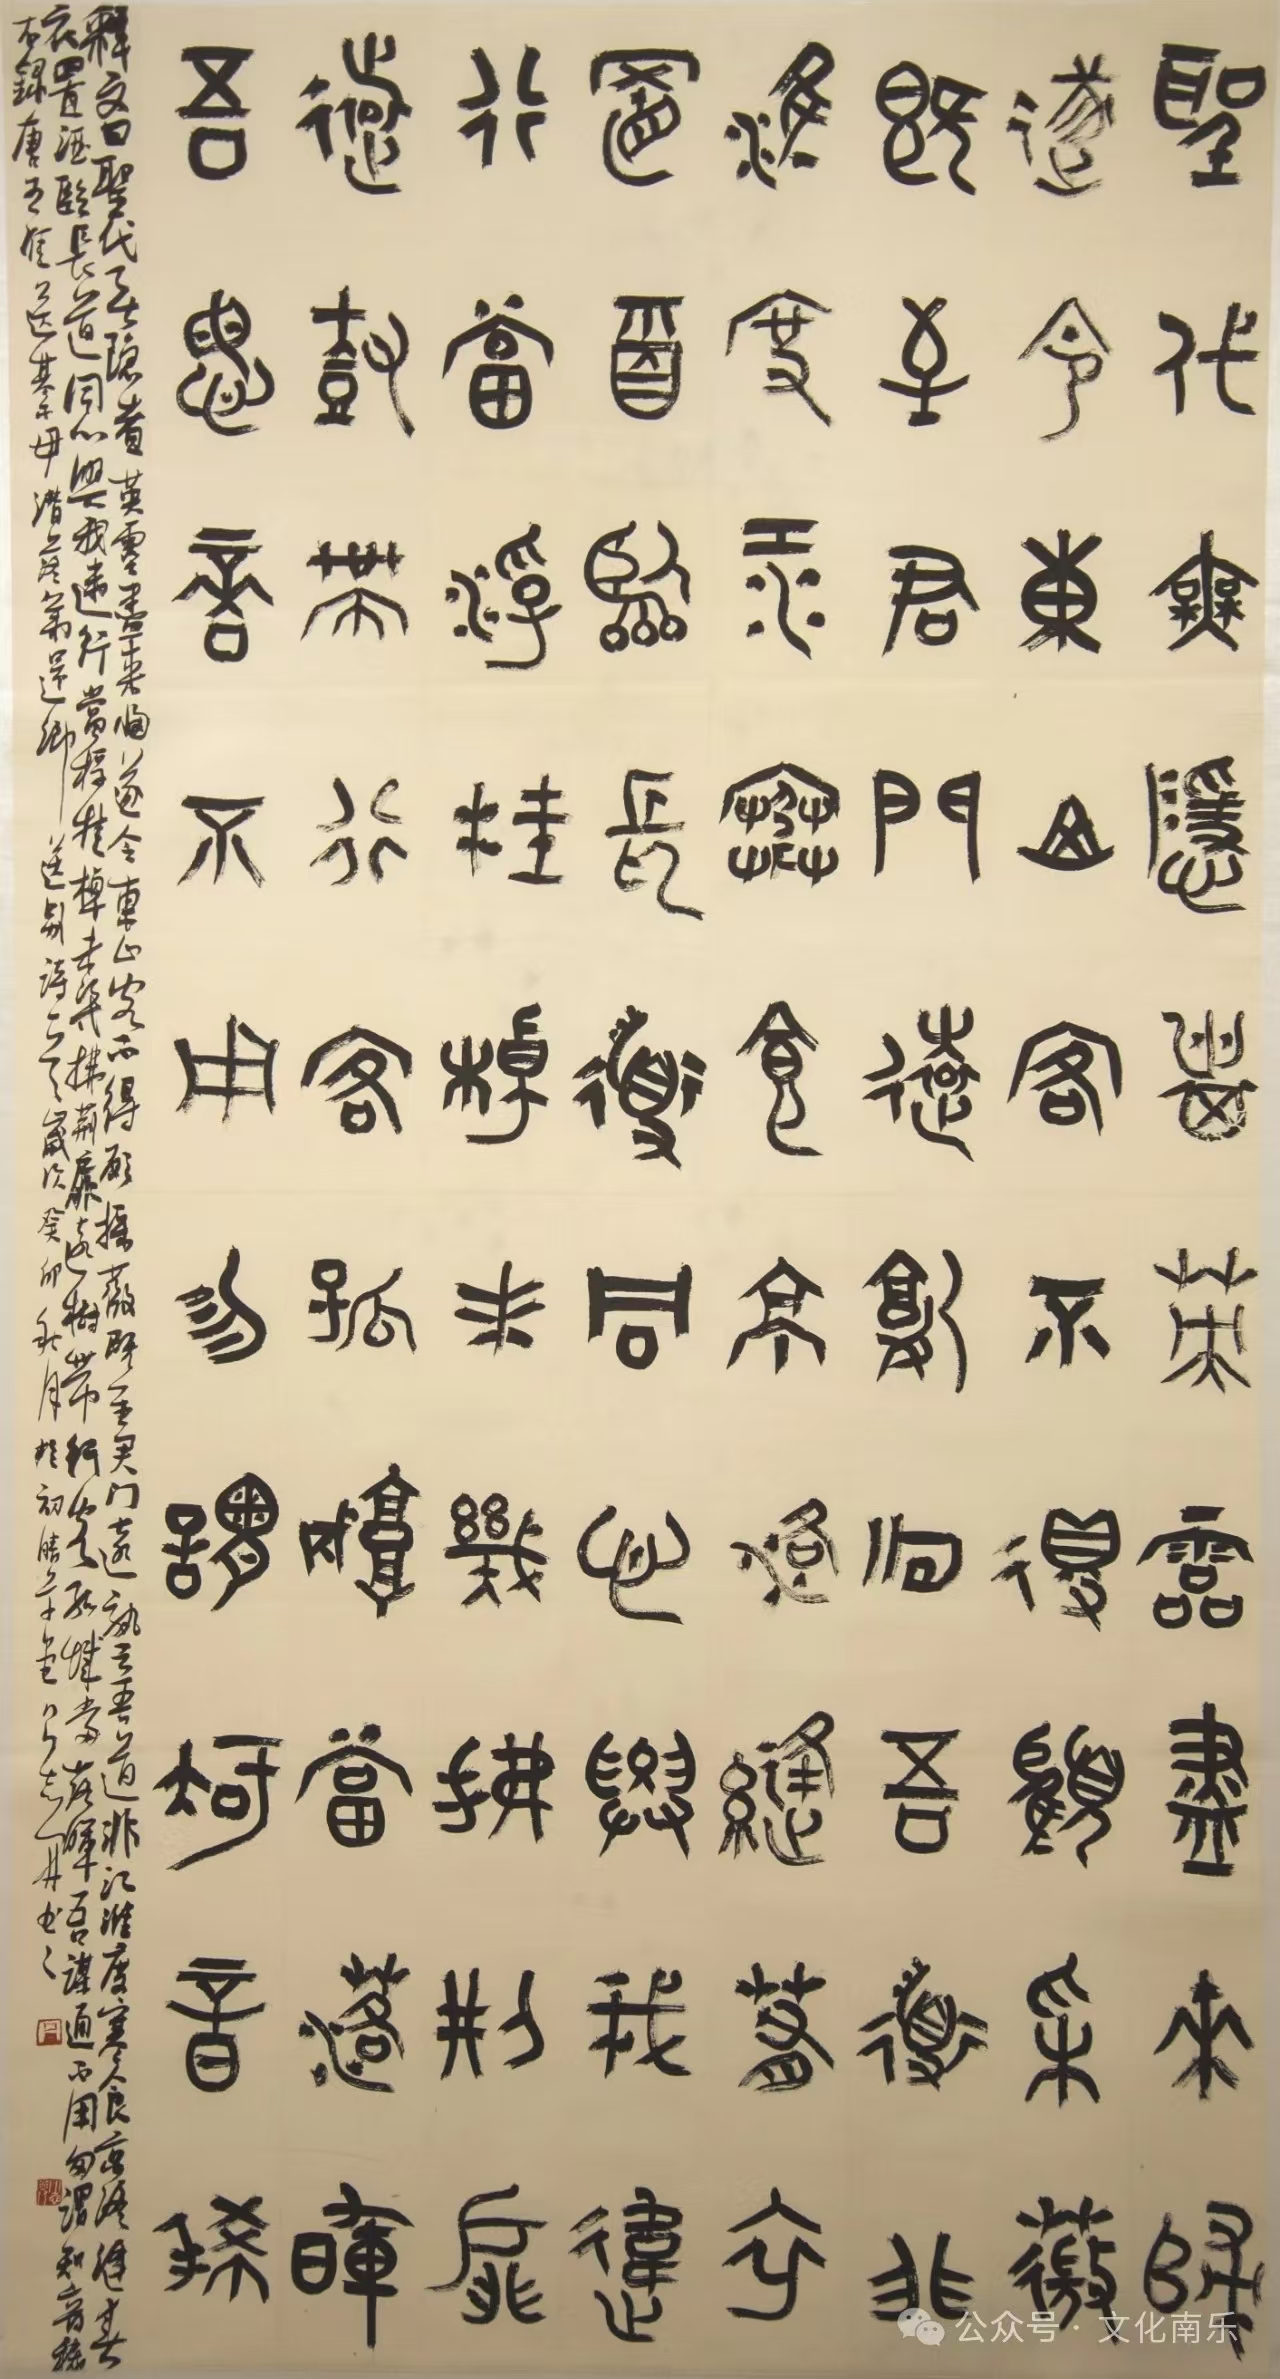 聖代無隱者英靈盡來歸
遂令東山客不得顧采薇
既至君門遠孰云吾道非
淮度江寒食京洛縫春衣
置酒臨長道同心與我違
行當浮桂棹未幾拂荊扉
遠樹帶行客孤城當落暉
吾謀適不用勿謂知音稀
釋文曰聖代無隱者英靈盡來歸遂令東山客不得顧採薇既至君門遠孰云吾道非江淮度寒食京洛縫春
衣置酒臨長道同心與我違行當桴桂棹未幾拂荊扉遠樹帶行客孤城當落暉吾謀適不用勿謂知音稀
右錄唐王維送綦毋潛落第還鄉送別詩一首歲次癸卯秋月於初晴草堂書之
公众号·文化南乐